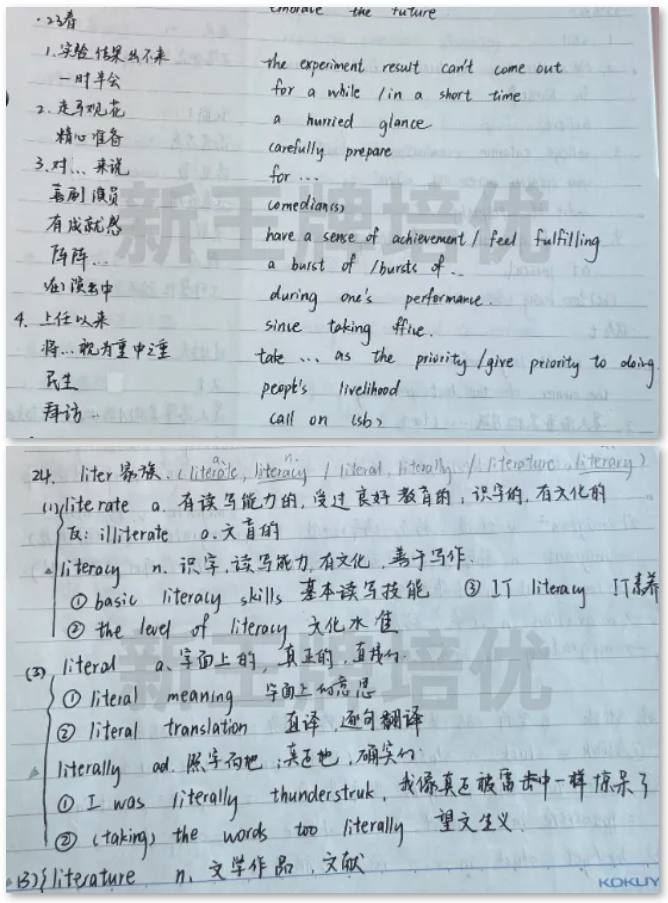 embrace the future
·23春
1. 实验结果出不来 the experiment result can't come out
一时半会 for a while / in a short time
2. 走马观花 a hurried glance
精心准备 carefully prepare
3. 对... 来说 for ...
喜剧演员 comedian(s)
有成就感 have a sense of achievement / feel fulfilling
阵阵... a burst of / bursts of ..
(在)演出中 during one's performance.
4. 上任以来 since taking ffice.
将...视为重中之重 take ... as the priority / give priority to doing.
民生 people's livelihood
拜访 call on (sb)
新王牌培优
24. liter家族. (literate, literacy / literal, literally / literature, literary)
a. n.
(1) literate a. 有读写能力的, 受过良好教育的, 识字的, 有文化的
反: illiterate a. 文盲的
literacy n. 识字, 读写能力, 有文化, 善于写作.
① basic literacy skills 基本读写技能 ③ IT literacy IT素养
② the level of literacy 文化水准
(2) literal a. 字面上的, 真正的, 直接的.
① literal meaning 字面上的意思
② literal translation 直译, 逐句翻译
literally ad. 照字面地; 真正地, 确实的.
① I was literally thunderstruk, 我像真正被雷击中一样惊呆了
② (taking) the words too literally 望文生义.
(3) literature n. 文学作品, 文献
新王牌培优
KOKUY